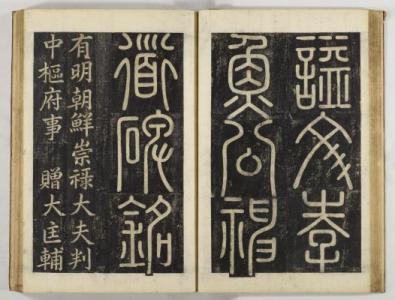 諡文孝
魚公神
道碑銘
有明朝鮮崇禄大夫判
中樞府事 贈大匡輔